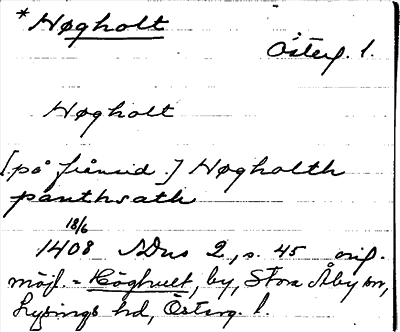 *Høgholt
Österg. l.
Høgholt
[på frånsid.] Høgholth
panthrath
18/6
1408 SDns 2, s. 45 orig.
möjl. = Höghult, by, Stora Åby sn,
Lysings hd, Österg. l.